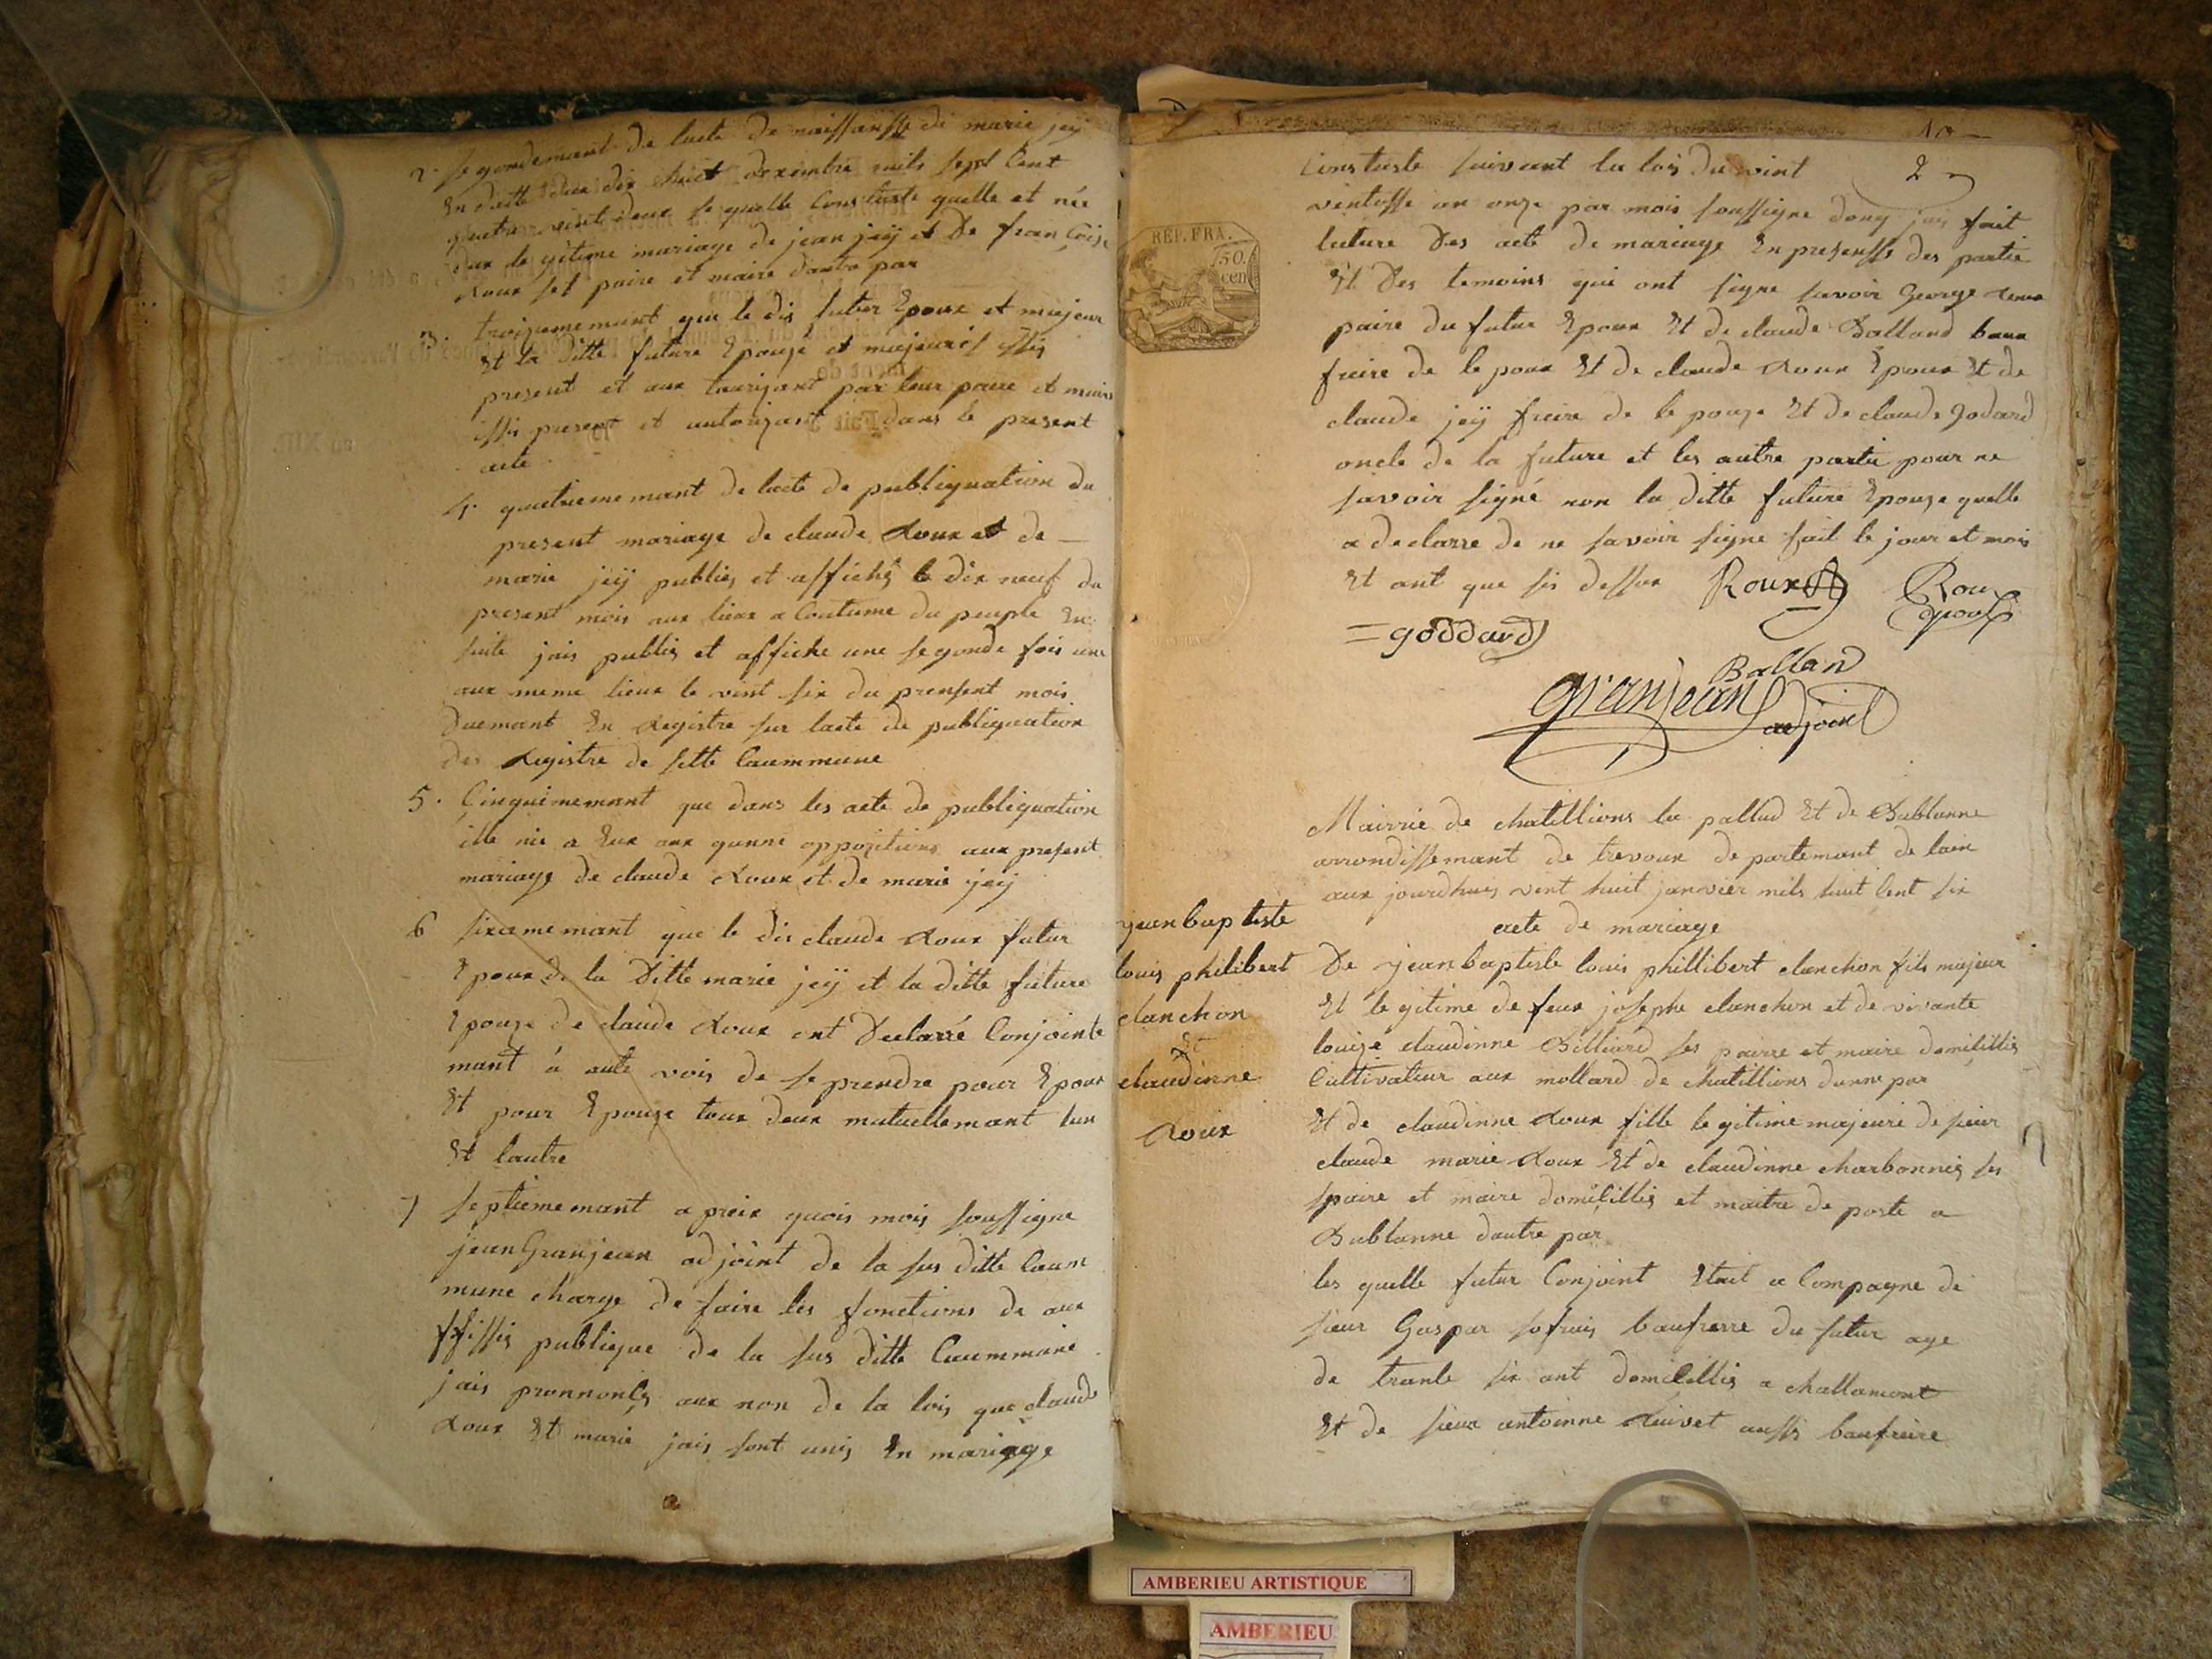 2. segondemant de lacte de naissansse de marie jeÿ
En datte du dix huit dexembre mils sept Cent
quatre vint deux se quelle Constaste quelle et née
dux legitime mariage de jean jeÿ et De franÇoise
Roux set paire et maire dautre par
3. troizememant que le dis futur Epoux et majeur
Et la ditte future Epouze et majeure issis
present et aux taurizant par leur paire et maire
issis present et autorizant dans le present
acte
4. quatriememant de lacte de publiquation du
present mariage de claude Roux et de —
marie jeÿ publies et affiché le dix neuf du
present mois aux lieux a Coutume du peuple En
suite jais publis et affiche une segonde fois
aux meme lieux le vint six du prensent mois
Duemant En Registre sur lacte de publiquation
des Registre de sette Caummune
5. Cinquimemant que dans les acte de publiquation
ille nis a Eux aux qunne oppozitions aux present
mariage de claude Roux et de marie jeÿ
6 sixamemant que le dis claude Roux futur
Epoux de la Ditte marie jeÿ et la ditte future
Epouze de claude Roux ont Declarré Conjointe
mant à aute vois de se prendre pour Epoux
Et pour Epouze tous deux mutuellemant lun
Et lautre
7 septiememant a preix quois mois soussigne
jean Granjean adjoint de la sus ditte Caum
mune charge de faire les fonctions de aux
ffissis publique de la sus ditte Caummune
jais pronnonCs aux non de la lois que claude
Roux Et marie jais sont unis En mariage
10 —
Constaste suivant la lois du vint 2
ventosse an onze par mois soussigne donq jais fait
lecture Des acte de mariage En presensse des partie
Et Des temoins qui ont signe savoir George Roux
paire du futur Epoux Et de claude Balland baux
fraire de lepoux Et de claude Roux Epoux Et de
claude jeÿ freire de lepouze Et de claude Godard
oncle de la future et les autre partie pour ne
savoir signé non la ditte future Epouze quelle
a declarre de ne savoir signe fait le jour et mois
Et ant que sis dessux Roux Roux
epoux
= goddard
Ballan
granjean adjoint
REP. FRA.
50.
cen
Mairrie de chatillions la pallud Et de Bublanne
arrondissemant de trevoux departemant de lain
aux jourdhuis vint huit janvier mils huit Cent six
acte de mariage
jean baptiste
louis philibert
clanchon
et
claudinne
Roux
De jean baptiste louis phillibert clanchon fils majeur
Et legitime de feux josephe clanchon et de vivante
louize claudinne Billiard ses pairre et maire domicillis
Cultivateur aux mollard de chatillions dunne par
Et de claudinne Roux fille legitime majeure de sieur
claude marie Roux Et de claudinne charbonnis ses
paire et maire domiCillis et maitre de poste a
Bublanne dautre par
les quelle futur Conjoint Etait a Compagne de
sieur Gaspar sofrais baufrerre du futur age
de trante six ant domicillis a challamont
Et de sieur antoinne Quivet aussi baufreire
AMBERIEU ARTISTIQUE
AMBERIEU